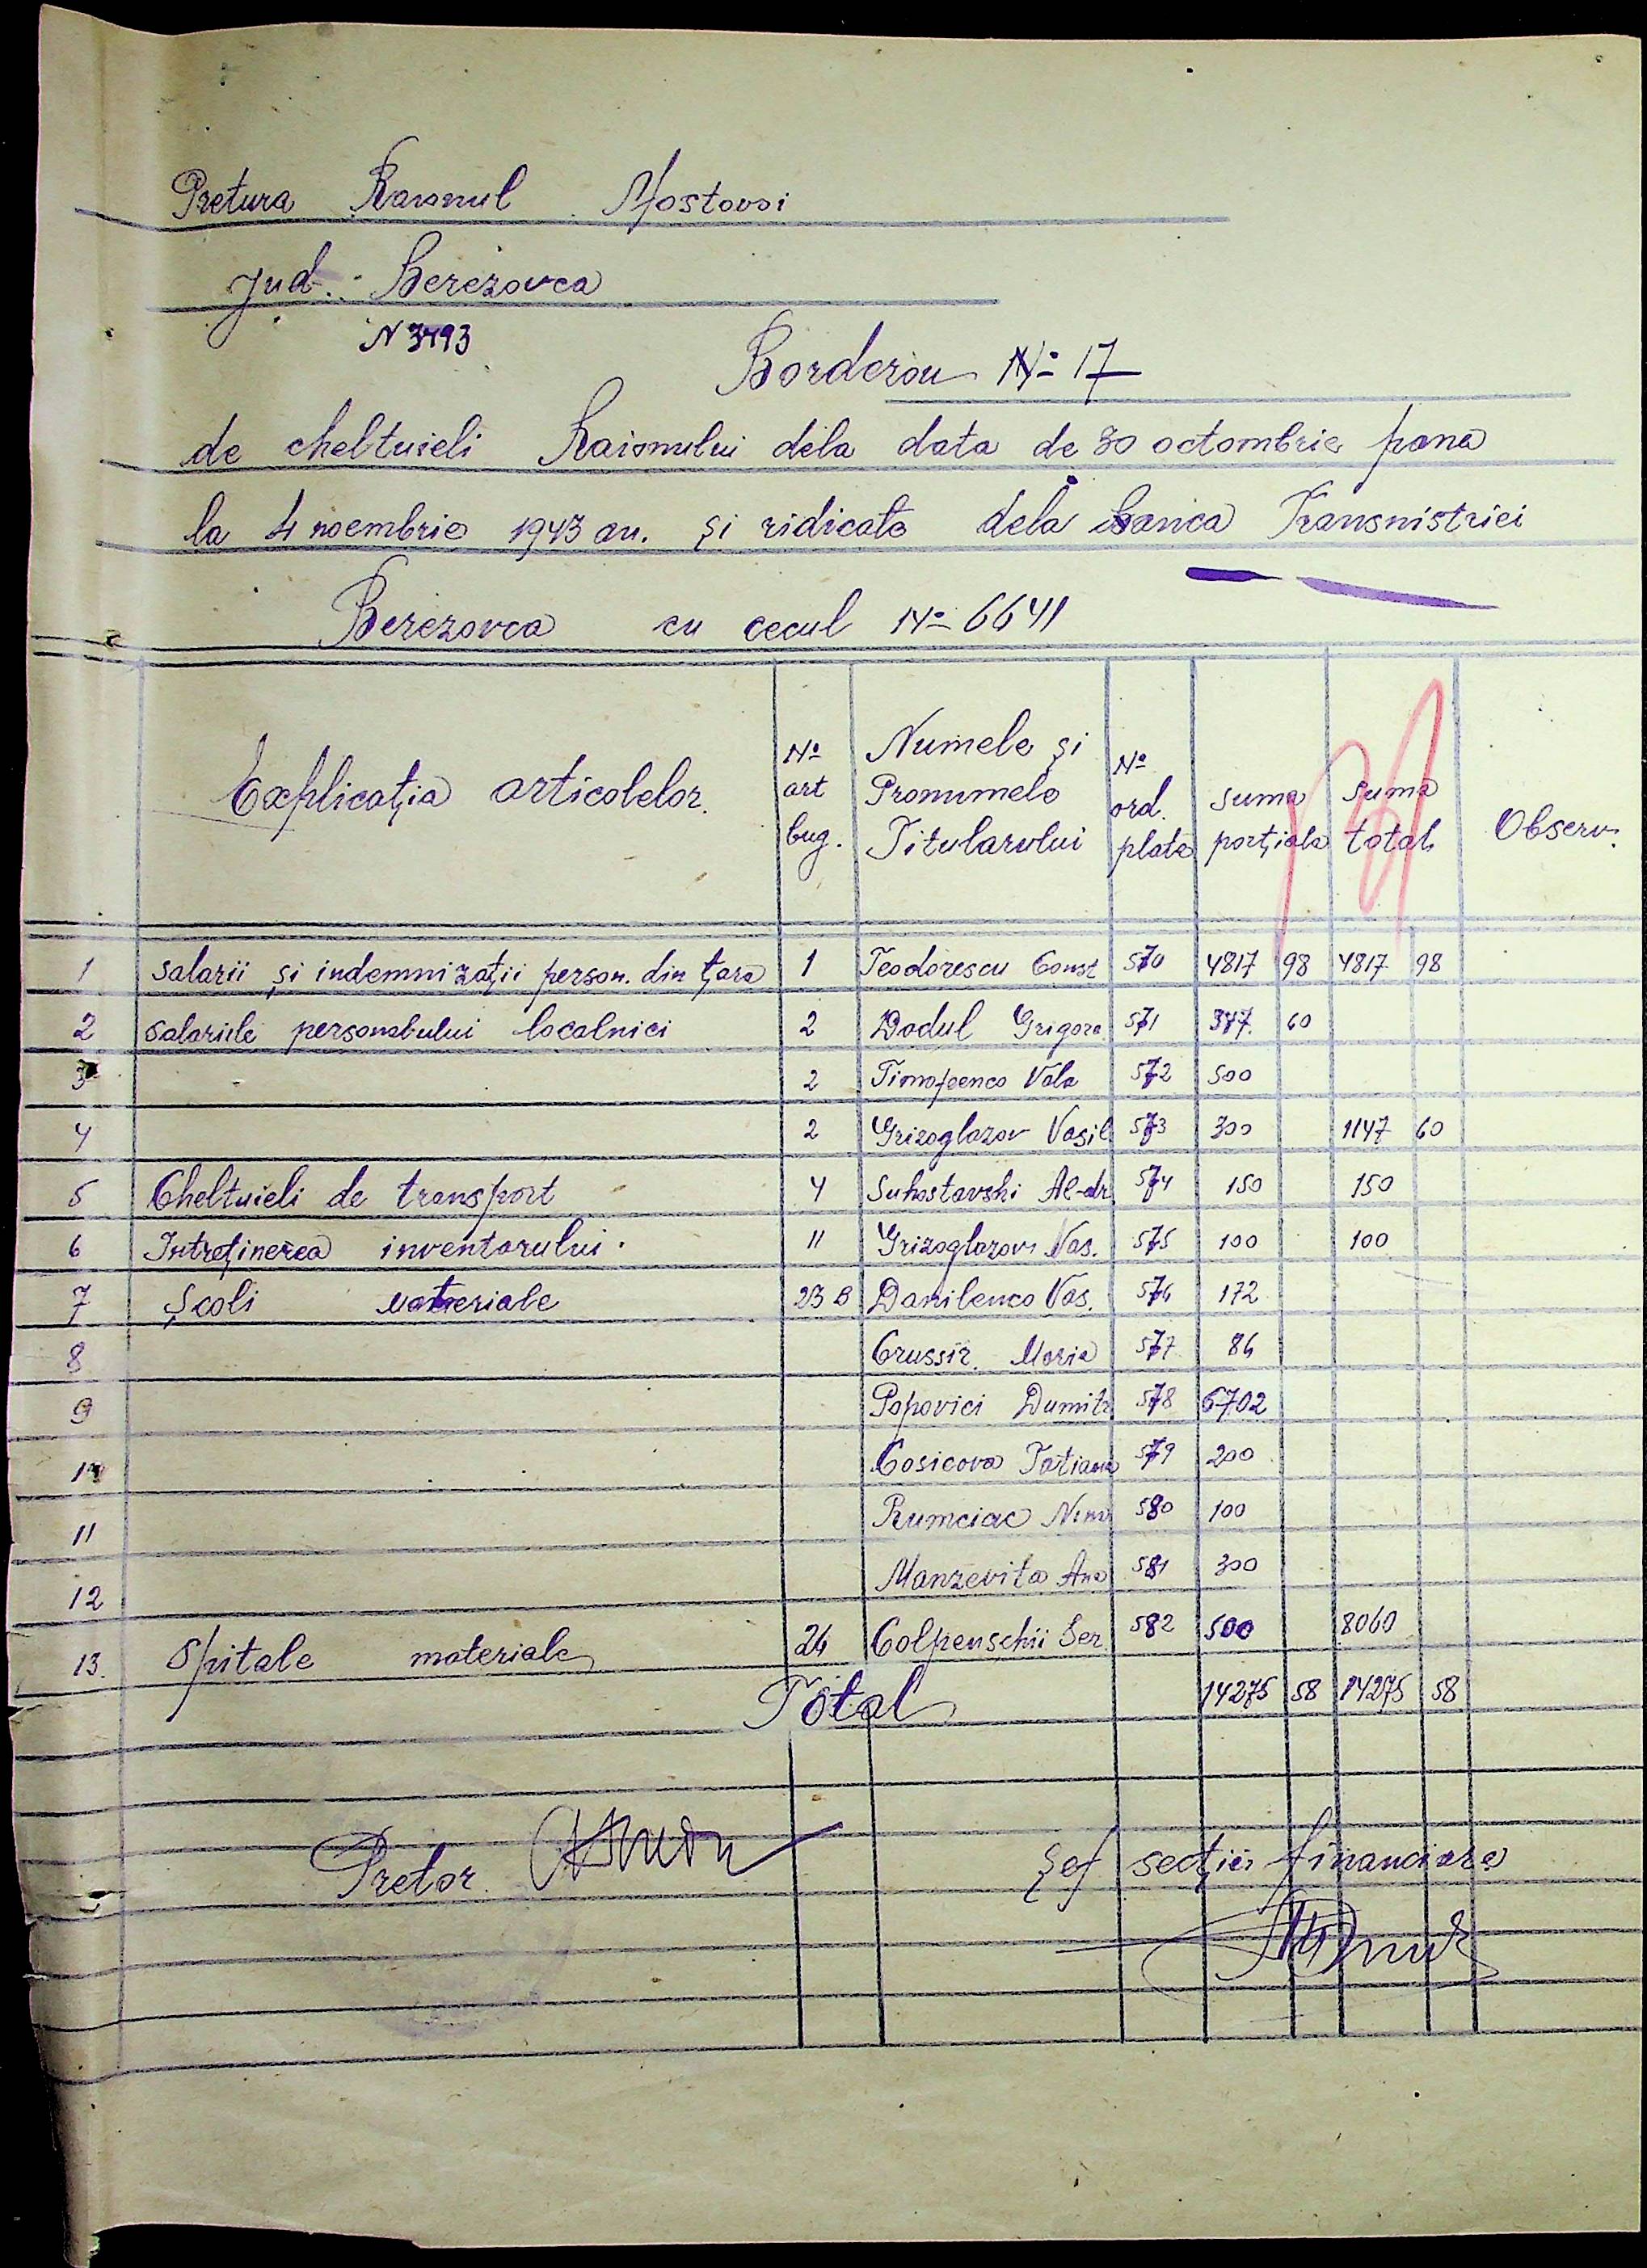 Pretura Raionul Mostovoi
Jud. Berezovca
N 3493
Borderou № 17
de cheltuieli Raionului dela data de 30 octombrie pana
la 4 noembrie 1943 an. și ridicate dela Banca Transnistriei
Berezovca cu cecul № 6641
Explicația articolelor. № art bug. Numele și Pronumele Titularului № ord. plata suma porțiala suma total Observ.
1 salarii și indemnizații person. din țara 1 Teodorescu Const 570 4817 98 4817 98
2 salariile personalului localnici 2 Dodul Grigore 571 347. 60
3 2 Timofeenco Vala 572 500
4 2 Grizoglazov Vasil 573 300 1147 60
5 Cheltuieli de transport 4 Suhostavski Al-dr 574 150 150
6 Intreținerea inventarului. 11 Grizoglazov Vas. 575 100 100
7 Școli materiale 23 B Danilenco Vas. 576 172
8 Crussir. Maria 577 86
9 Popovici Dumitr 578 6702
10 Cosicova Tatiana 579 200
11 Rumciac Nina 580 100
12 Manzevita Ana 581 300
13. Spitale materiale 26 Colpenschii Ser. 582 500 8060
Total 14275 58 14275 58
Pretor. Șef secției financiara